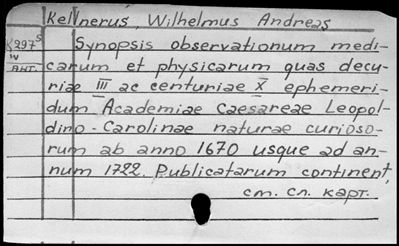 Kellnerus, Wilhelmus Andreas
K297⁵
IV
АНТ.
Synopsis observationum medi-
carum et physicarum quas decu-
riae III ac centuriae X ephemeri-
dum Academiae Caesareae Leopol-
dino-Carolinae naturae curioso-
rum ab anno 1670 usque ad an-
num 1722. Publicatarum continent,
см. сл. карт.